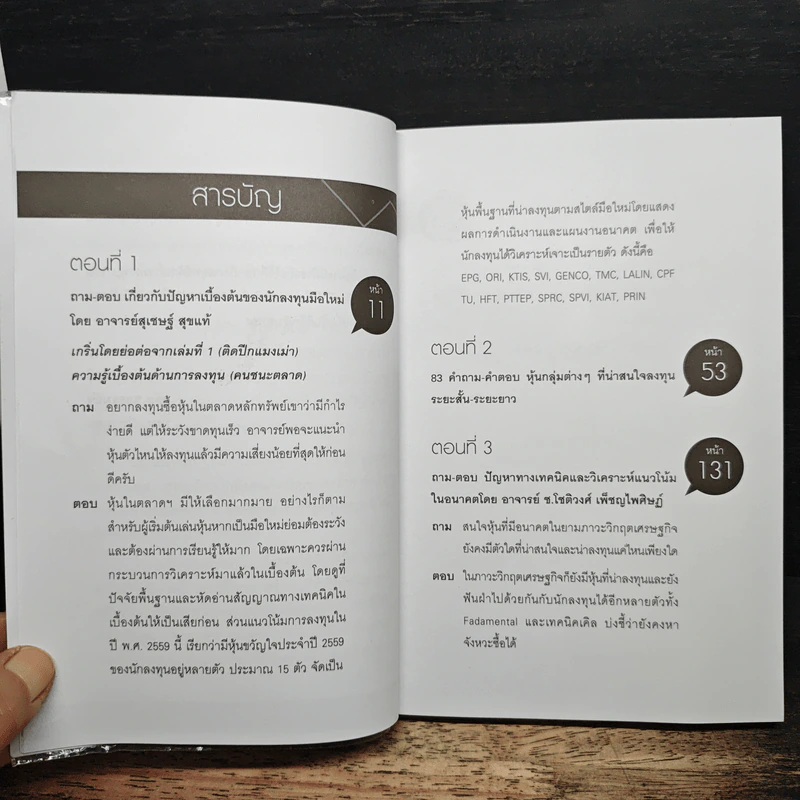 สารบัญ
ตอนที่ 1
ถาม-ตอบ เกี่ยวกับปัญหาเบื้องต้นของนักลงทุนมือใหม่
โดย อาจารย์สุเชษฐ์ สุขแท้
หน้า
11
เกริ่นโดยย่อต่อจากเล่มที่ 1 (ติดปีกแมงเม่า)
ความรู้เบื้องต้นด้านการลงทุน (คนชนะตลาด)
ถาม อยากลงทุนซื้อหุ้นในตลาดหลักทรัพย์เขาว่ามีกำไร
ง่ายดี แต่ให้ระวังขาดทุนเร็ว อาจารย์พอจะแนะนำ
หุ้นตัวไหนให้ลงทุนแล้วมีความเสี่ยงน้อยที่สุดให้ก่อน
ดีครับ
ตอบ หุ้นในตลาดฯ มีให้เลือกมากมาย อย่างไรก็ตาม
สำหรับผู้เริ่มต้นเล่นหุ้นหากเป็นมือใหม่ย่อมต้องระวัง
และต้องผ่านการเรียนรู้ให้มาก โดยเฉพาะควรผ่าน
กระบวนการวิเคราะห์มาแล้วในเบื้องต้น โดยดูที่
ปัจจัยพื้นฐานและหัดอ่านสัญญาณทางเทคนิคใน
เบื้องต้นให้เป็นเสียก่อน ส่วนแนวโน้มการลงทุนใน
ปี พ.ศ. 2559 นี้ เรียกว่ามีหุ้นขวัญใจประจำปี 2559
ของนักลงทุนอยู่หลายตัว ประมาณ 15 ตัว จัดเป็น
หุ้นพื้นฐานที่น่าลงทุนตามสไตล์มือใหม่โดยแสดง
ผลการดำเนินงานและแผนงานอนาคต เพื่อให้
นักลงทุนได้วิเคราะห์เจาะเป็นรายตัว ดังนี้คือ
EPG, ORI, KTIS, SVI, GENCO, TMC, LALIN, CPF
TU, HFT, PTTEP, SPRC, SPVI, KIAT, PRIN
ตอนที่ 2
83 คำถาม-คำตอบ หุ้นกลุ่มต่างๆ ที่น่าสนใจลงทุน
ระยะสั้น-ระยะยาว
หน้า
53
ตอนที่ 3
ถาม-ตอบ ปัญหาทางเทคนิคและวิเคราะห์แนวโน้ม
ในอนาคตโดย อาจารย์ ช.โชติวงศ์ เพ็ชญไพศิษฏ์
หน้า
131
ถาม สนใจหุ้นที่มีอนาคตในยามภาวะวิกฤตเศรษฐกิจ
ยังคงมีตัวใดที่น่าสนใจและน่าลงทุนแค่ไหนเพียงใด
ตอบ ในภาวะวิกฤตเศรษฐกิจก็ยังมีหุ้นที่น่าลงทุนและยัง
ฟันฝ่าไปด้วยกันกับนักลงทุนได้อีกหลายตัวทั้ง
Fadamental และเทคนิคเคิล บ่งชี้ว่ายังคงหา
จังหวะซื้อได้